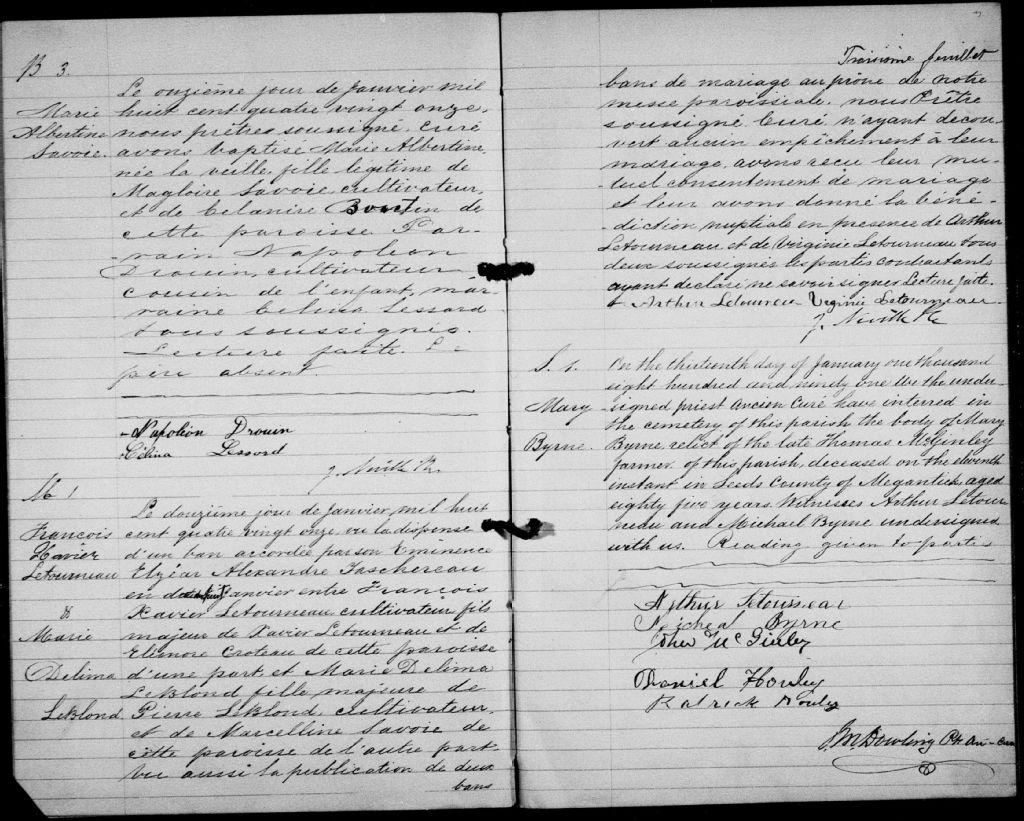 B 3.
Marie
Albertine
Savoie.
Le onzième jour de Janvier mil
huit cent quatre vingt onze,
nous prêtres soussigné, curé
avons baptisé Marie Albertine
née la veille, fille légitime de
Magloire Savoie, cultivateur,
et de Célanire in de
cette paroisse Par-
rain Napoléon
Drouin, cultivateur
cousin de l'enfant, mar-
raine Célina Lessard
tous soussignés.
Lecture faite. Le
père absent.
Napoléon Drouin
Célina Lessard
J. Neville Ptr.
M 1
François
Xavier
Letourneau
&
Marie
Delima
LeBlond
Le douzième jour de Janvier, mil huit
cent quatre vingt onze, vu la dispense
d'un ban accordée par son Eminence
Elzéar Alexandre Taschereau
en d Janvier entre François
Xavier Letourneau, cultivateur, fils
majeur de Xavier Letourneau et de
Elénore Croteau de cette paroisse
d'une part, et Marie Delima
LeBlond fille majeure de
Pierre LeBlond, cultivateur,
et de Marcelline Savoie de
cette paroisse de l'autre part
vu aussi la publication de deux
bans
Troisième feuillet
bans de mariage au prône de notre
messe paroissiale, nous Prêtre
soussigné, Curé n'ayant decou-
vert aucun empêchement à leur
mariage, avons reçu leur mu-
tuel consentement de mariage
et leur avons donné la béné-
diction nuptiale en presence de Arthur
Letourneau et de Virginie Letourneau tous
deux soussignés les partis contractants
ayant déclaré ne savoir signer Lecture faite.
Arthur Letourneau Virginie Letourneau
J. Neville Ptr
S. 1.
Mary
Byrne.
On the thirteenth day of January one thousand
eight hundred and ninety one we the under-
signed priest Ancien Curé have interred in
the cemetery of this parish the body of Mary
Byrne, relict of the late Thomas McGinley
farmer of this parish, deceased on the eleventh
instant in Leeds County of Megantick, aged
eighty five years. Witnesses Arthur Letour
neau and Michael Byrne undersigned
with us. Reading given to partis
Arthur Letourneau
Micheal Byrne
John McGinley
Daniel Hanley
Patrick
Dowling Ptr An-Curé